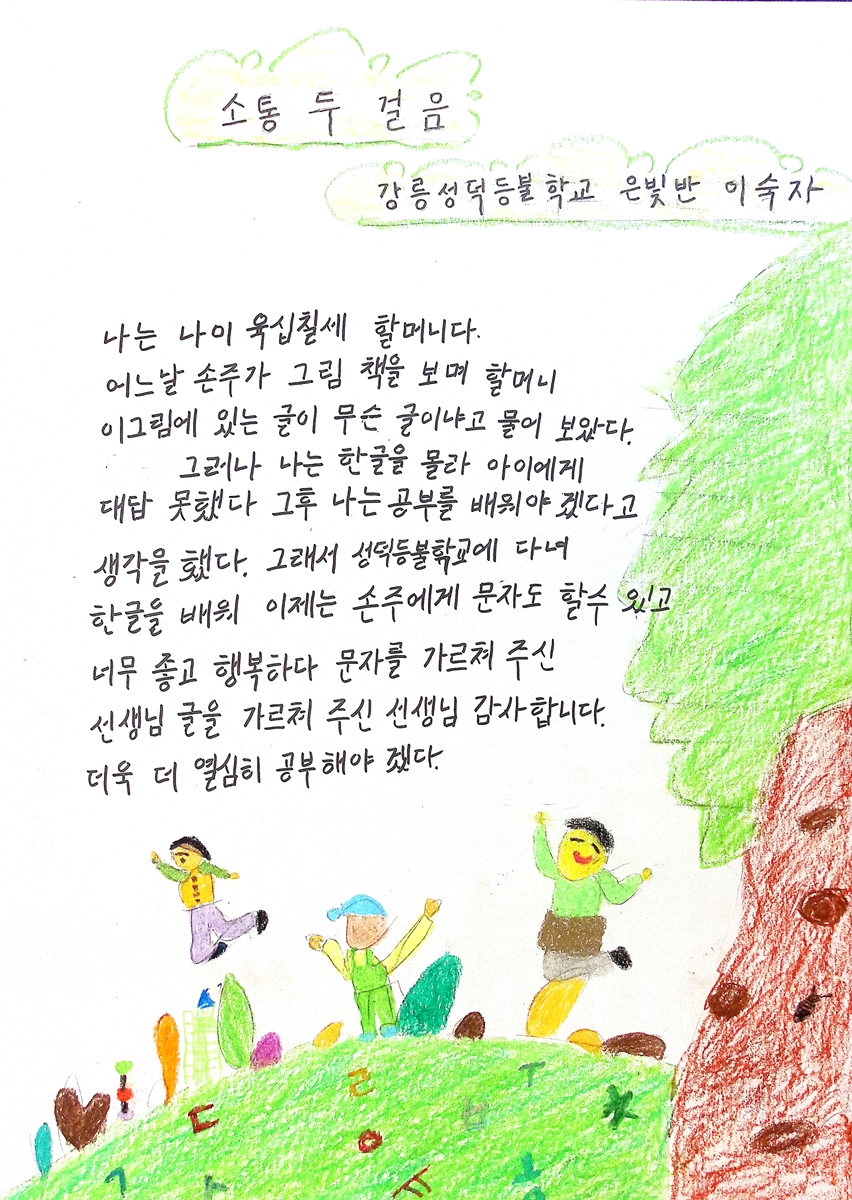 소통 두 걸음
강릉성덕등불학교 은빛반 이숙자
나는 나이 육십칠세 할머니다.
어느날 손주가 그림 책을 보며 할머니
이그림에 있는 글이 무슨 글이냐고 물어 보았다.
그러나 나는 한글을 몰라 아이에게
대답 못했다 그후 나는 공부를 배워야 겠다고
생각을 했다. 그래서 성덕등불학교에 다녀
한글을 배워 이제는 손주에게 문자도 할수 있고
너무 좋고 행복하다 문자를 가르쳐 주신
선생님 글을 가르쳐 주신 선생님 감사합니다.
더욱 더 열심히 공부해야 겠다.
ㄹ ㅜ
ㄷ ㅂ ㅊ
ㅇ
ㄱ ㅅ ㅎ